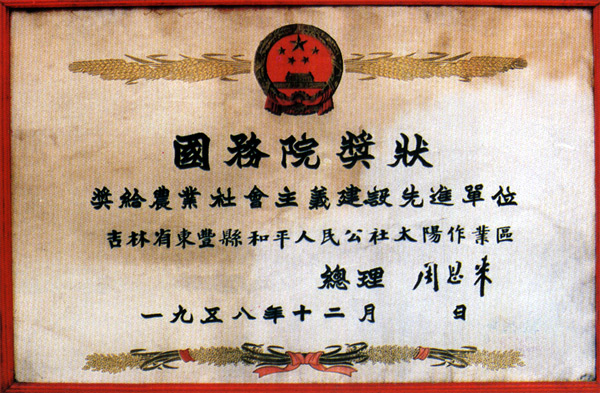 國務院獎狀
獎給農業社會主義建設先進單位
吉林省東豐縣和平人民公社太陽作業區
總理 周恩来
一九五八年十二月 日